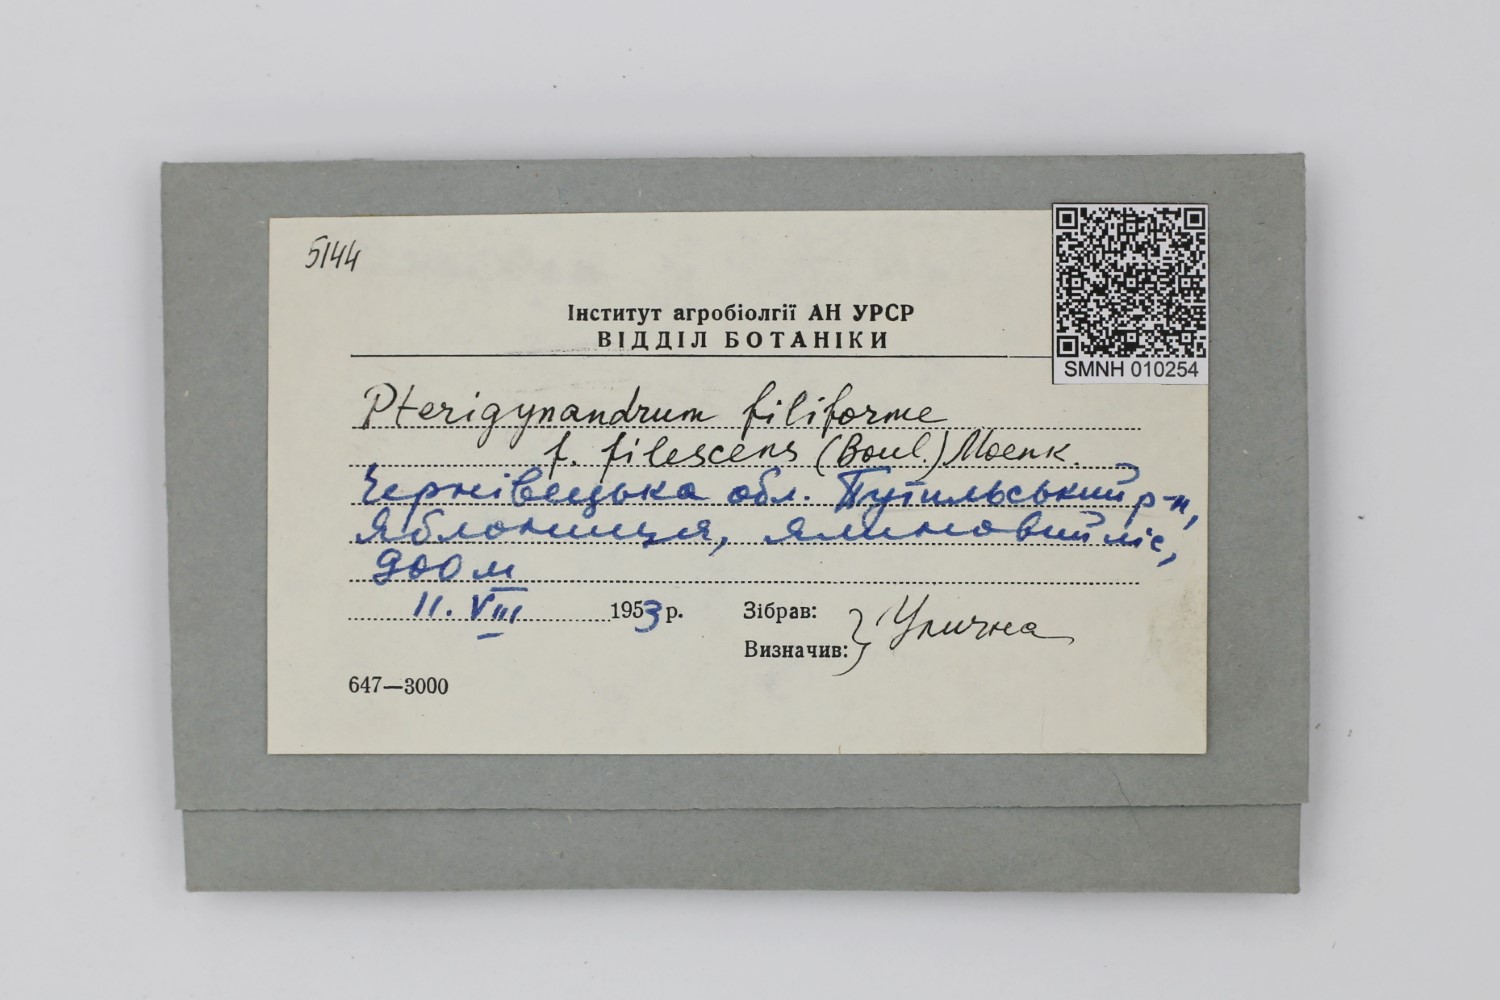 5144
Інститут агробіолгії АН УРСР
ВІДДІЛ БОТАНІКИ
SMNH 010254
Pterigynandrum filiforme
f. filescens (Boul.) Moenk.
Чернівецька обл. Путильський р-н,
Яблониця, ялиновий ліс,
900 м
11. VIII 1953 р.
Зібрав:
Визначив:
} Улична
647—3000